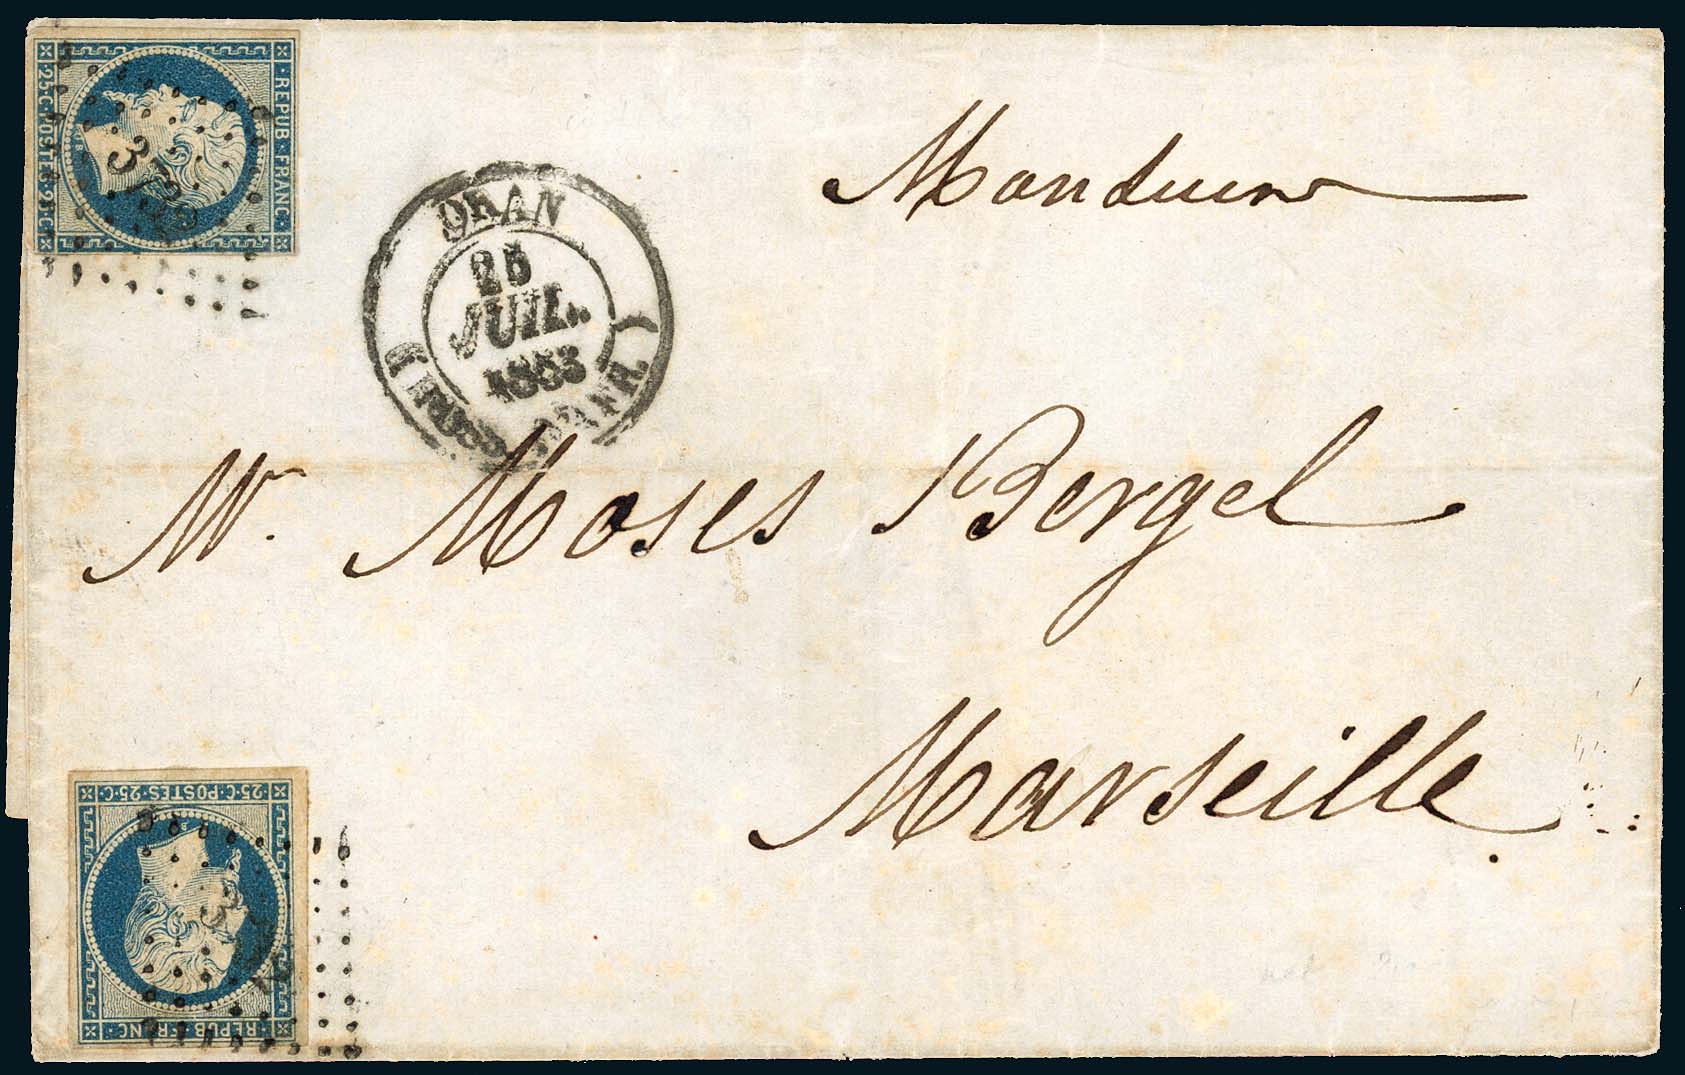 REPUB. FRANC.
25.C. POSTES 25.C
ORAN
25
JUIL.
1853
Mondieur
Mr. Moses Bergel
Marseille
25.C. POSTES 25.C
REPUB. FRANC.